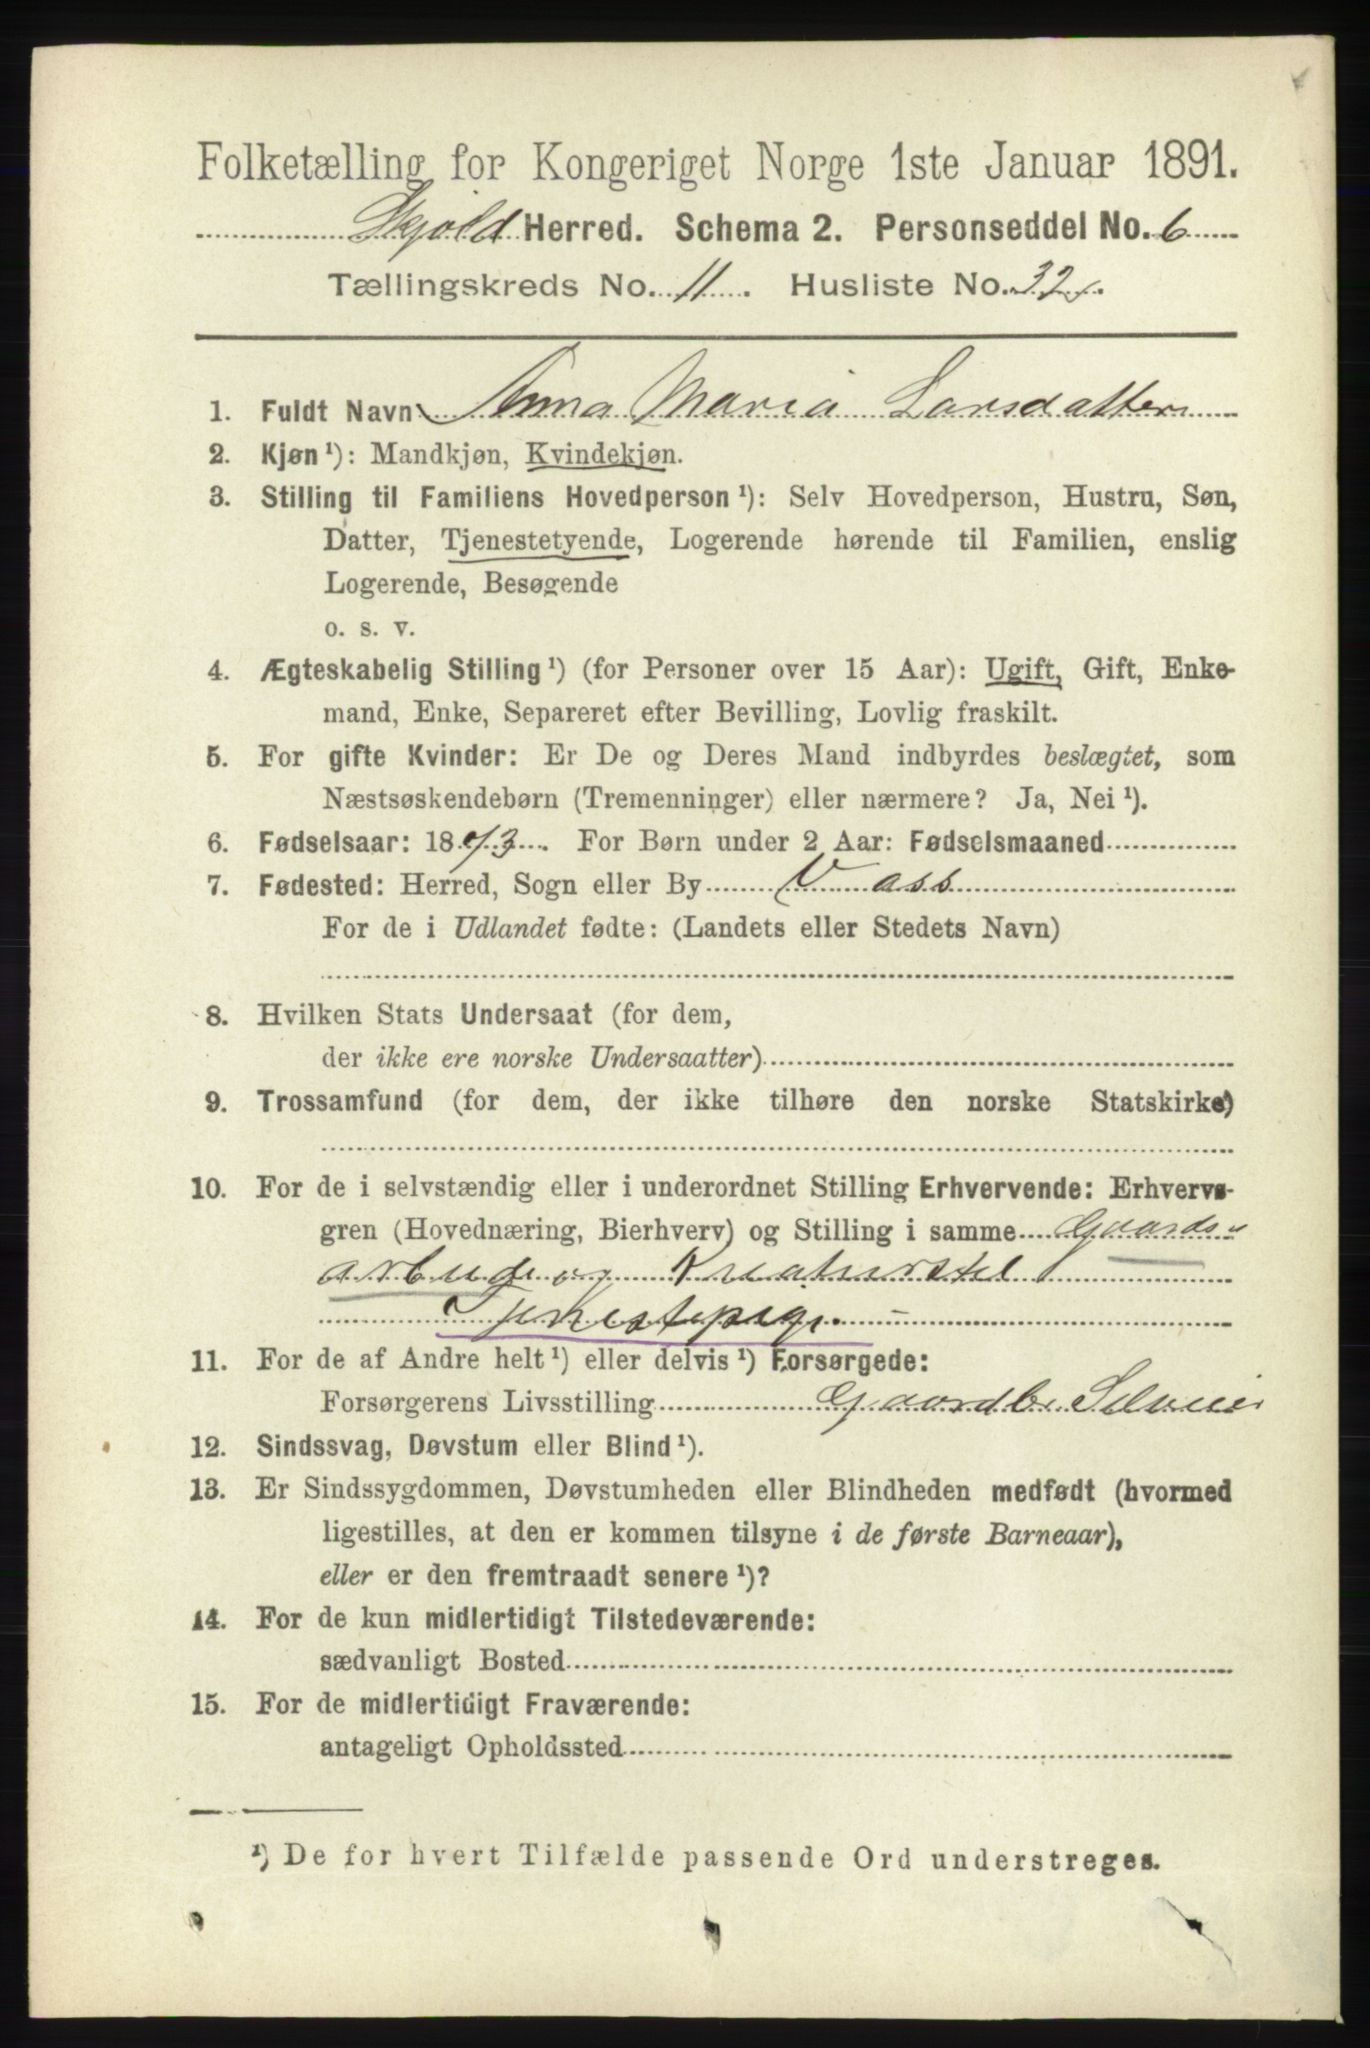 Folketælling for Kongeriget Norge 1ste Januar 1891.
Skjold Herred. Schema 2. Personseddel No. 6
Tællingskreds No. 11. Husliste No. 32.
1. Fuldt Navn Anna Maria Larsdatter
2. Kjøn ¹): Mandkjøn, Kvindekjøn.
3. Stilling til Familiens Hovedperson ¹): Selv Hovedperson, Hustru, Søn,
Datter, Tjenestetyende, Logerende hørende til Familien, enslig
Logerende, Besøgende
o. s. v.
4. Ægteskabelig Stilling ¹) (for Personer over 15 Aar): Ugift, Gift, Enke-
mand, Enke, Separeret efter Bevilling, Lovlig fraskilt.
5. For gifte Kvinder: Er De og Deres Mand indbyrdes beslægtet, som
Næstsøskendebørn (Tremenninger) eller nærmere? Ja, Nei ¹).
6. Fødselsaar: 18 . For Børn under 2 Aar: Fødselsmaaned
7. Fødested: Herred, Sogn eller By Vass
For de i Udlandet fødte: (Landets eller Stedets Navn)
8. Hvilken Stats Undersaat (for dem,
der ikke ere norske Undersaatter)
9. Trossamfund (for dem, der ikke tilhøre den norske Statskirke)
10. For de i selvstændig eller i underordnet Stilling Erhvervende: Erhvervs-
gren (Hovednæring, Bierhverv) og Stilling i samme Gaards-
arbeide og Kreaturstel
Tjenestepige. –
11. For de af Andre helt ¹) eller delvis ¹) Forsørgede:
Forsørgerens Livsstilling Gaardbr Selveier
12. Sindssvag, Døvstum eller Blind ¹).
13. Er Sindssygdommen, Døvstumheden eller Blindheden medfødt (hvormed
ligestilles, at den er kommen tilsyne i de første Barneaar),
eller er den fremtraadt senere ¹)?
14. For de kun midlertidigt Tilstedeværende:
sædvanligt Bosted
15. For de midlertidigt Fraværende:
antageligt Opholdssted
¹) De for hvert Tilfælde passende Ord understreges.